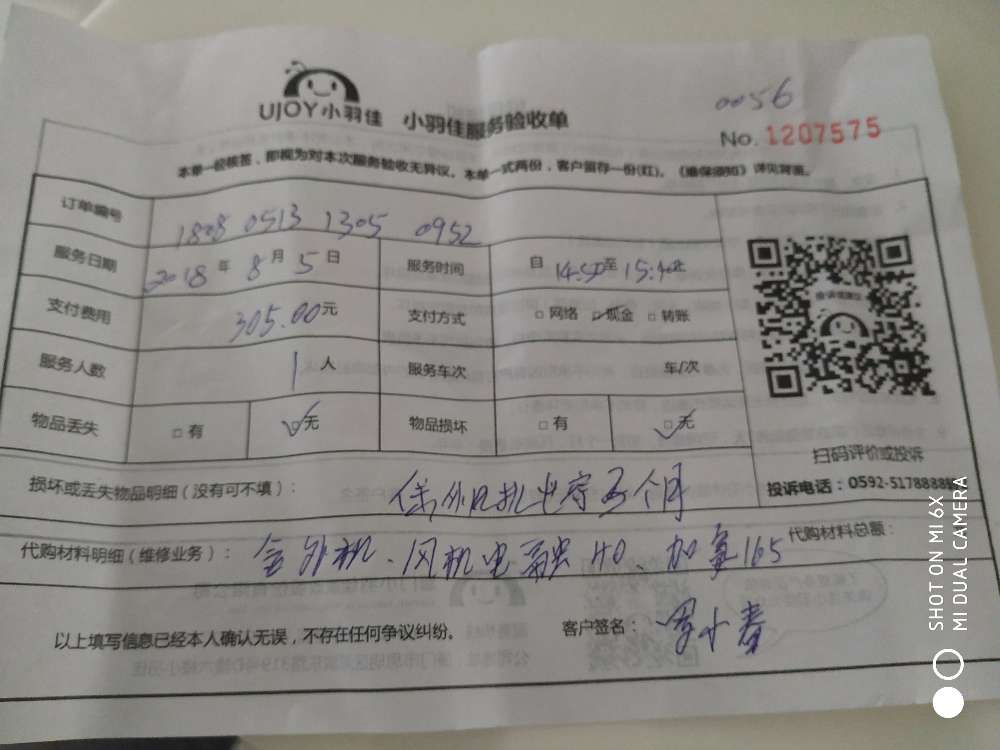 UJOY小羽佳 小羽佳服务验收单
0056
No. 1207575
本单一经核签，即视为对本次服务验收无异议。本单一式两份，客户留存一份(红)。《维保须知》详见背面。
订单编号 1808 0513 1305 0952
服务日期 2018 年 8 月 5 日 服务时间 自 14:50 至 15:40 止
支付费用 305.00 元 支付方式 □ 网络 □ 现金 □ 转账
服务人数 1 人 服务车次 车/次
物品丢失 □ 有 □ 无 物品损坏 □ 有 □ 无
扫码评价或投诉
投诉电话：0592-5178888
损坏或丢失物品明细（没有可不填）： 个月
代购材料明细（维修业务）： 外机、风机电 140、加氟165 代购材料总额：
以上填写信息已经本人确认无误，不存在任何争议纠纷。 客户签名：
SHOT ON MI 6X
MI DUAL CAMERA